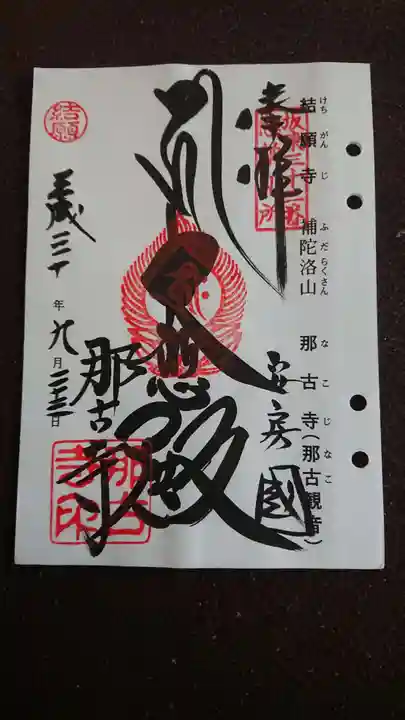 結願寺 補陀洛山 那古寺(那古観音)
けち がん じ ふ だ らく さん な こ じ な こ
奉拝
坂東三十三番
安房國
大悲殿
那古寺
結願
平成三十年九月二十三日
那古寺印